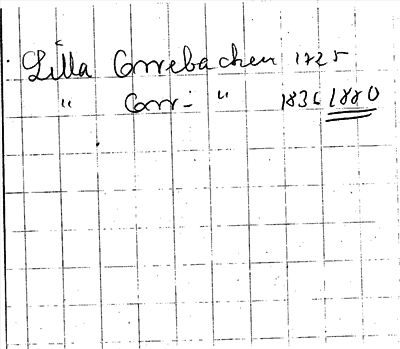 Lilla Correbachen 1725
" Corr- " 1836 1880